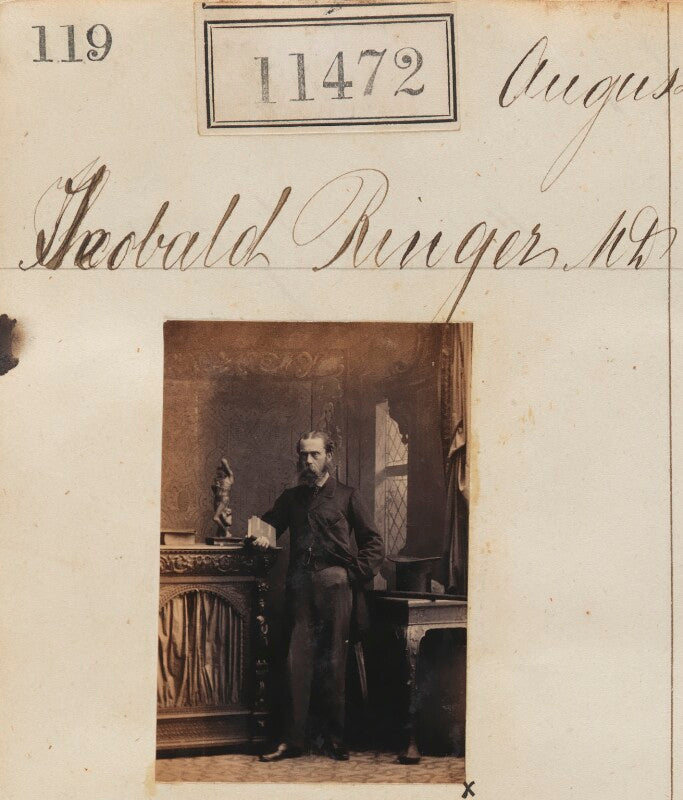 119
11472
Augus
Theobald Ringer MD
x